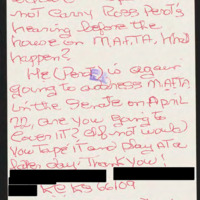 not Carry Ross Perot's
hearing before the
house on N.A.F.T.A. What
happen?
He (Perot) is again
going to address NAFTA
in the Senate on April
22, are you going to
Cover it? If not would
you tape it and play at a
later day. Thank You!
KC KS 66109